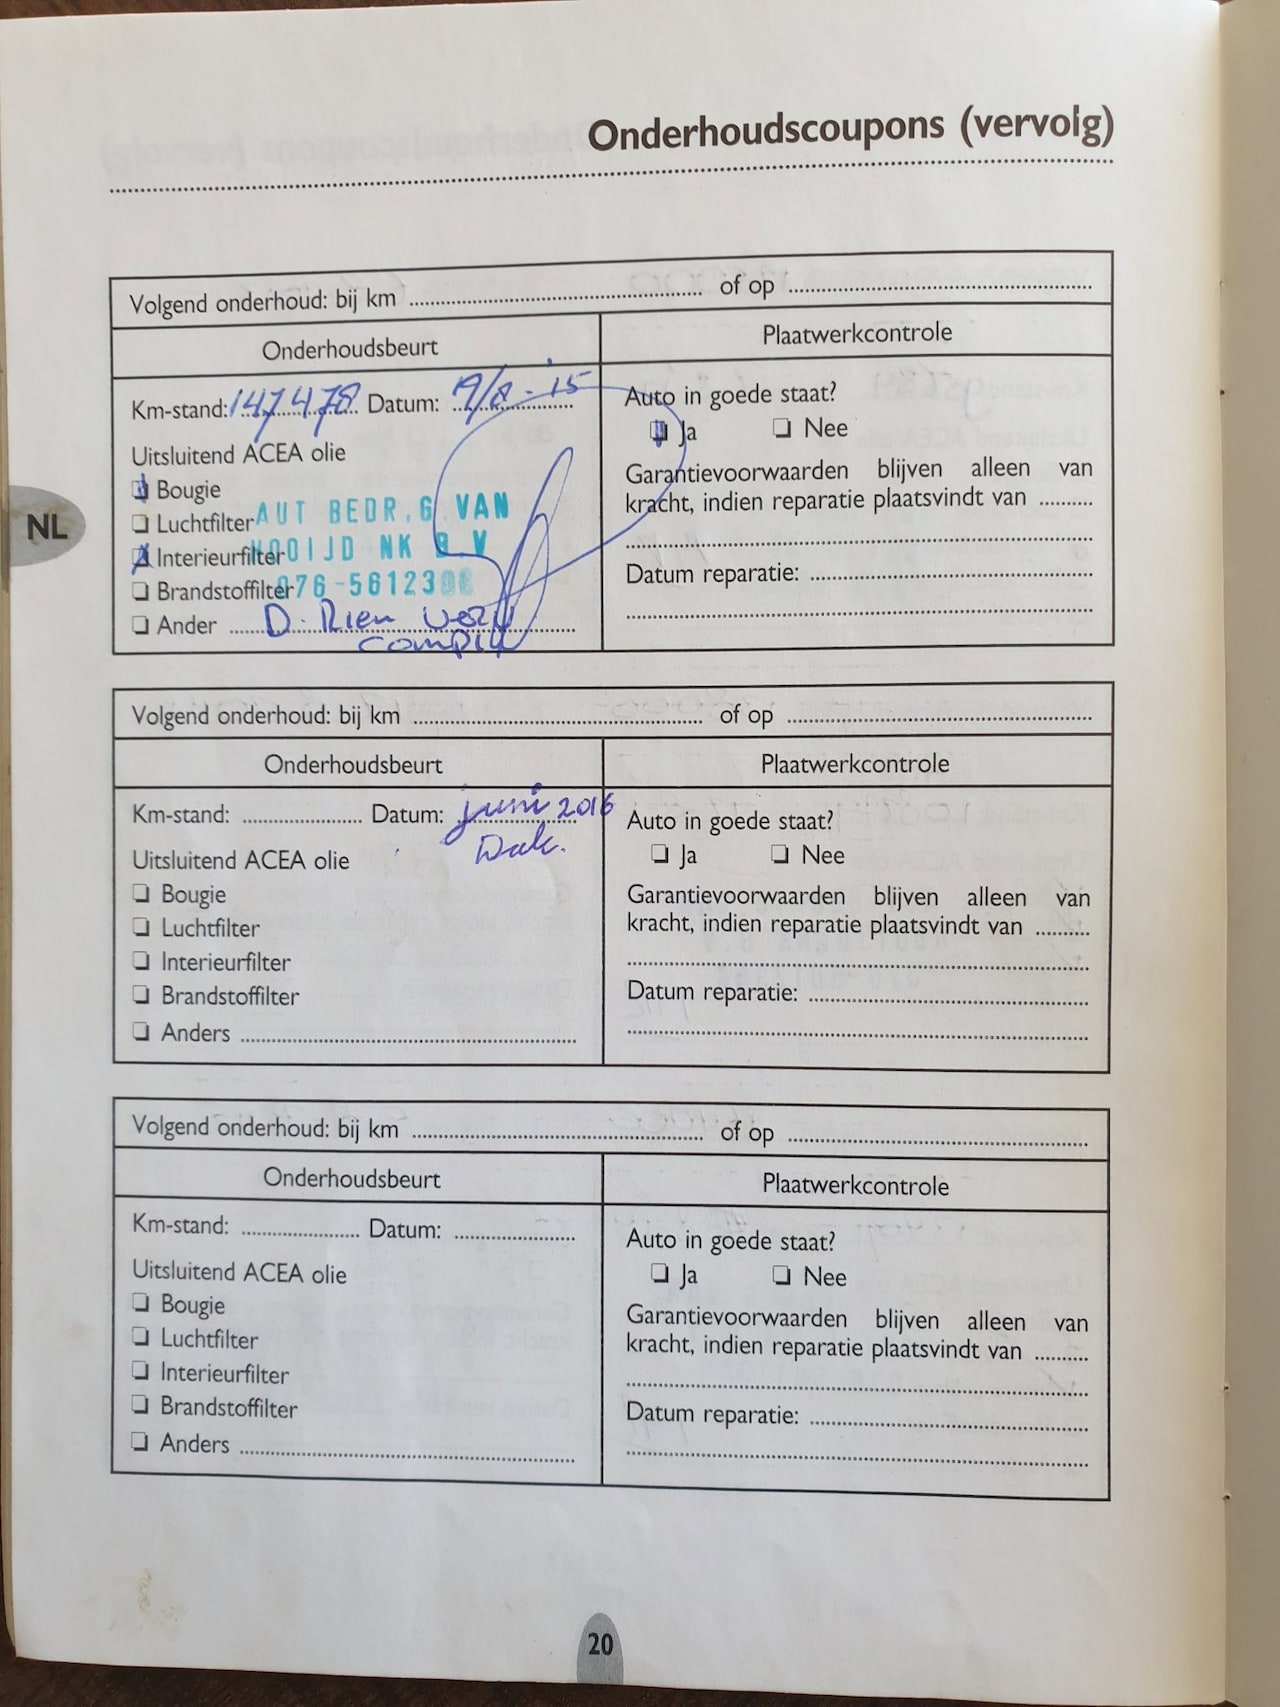 Onderhoudscoupons (vervolg)
Volgend onderhoud: bij km .......... of op ..........
Onderhoudsbeurt
Plaatwerkcontrole
Km-stand: 147478 Datum: 19/8-'15
Uitsluitend ACEA olie
Bougie
Luchtfilter
Interieurfilter
Brandstoffilter
Ander
AUT BEDR.G VAN
NOOIJD NK B.V
076-5612300
D. Riem
Auto in goede staat?
Ja Nee
Garantievoorwaarden blijven alleen van
kracht, indien reparatie plaatsvindt van ..........
Datum reparatie: ..........
NL
Volgend onderhoud: bij km .......... of op ..........
Onderhoudsbeurt
Plaatwerkcontrole
Km-stand: .......... Datum: juni 2016
Uitsluitend ACEA olie
Bougie
Luchtfilter
Interieurfilter
Brandstoffilter
Anders ..........
Auto in goede staat?
Ja Nee
Garantievoorwaarden blijven alleen van
kracht, indien reparatie plaatsvindt van ..........
Datum reparatie: ..........
Volgend onderhoud: bij km .......... of op ..........
Onderhoudsbeurt
Plaatwerkcontrole
Km-stand: .......... Datum: ..........
Uitsluitend ACEA olie
Bougie
Luchtfilter
Interieurfilter
Brandstoffilter
Anders ..........
Auto in goede staat?
Ja Nee
Garantievoorwaarden blijven alleen van
kracht, indien reparatie plaatsvindt van ..........
Datum reparatie: ..........
20